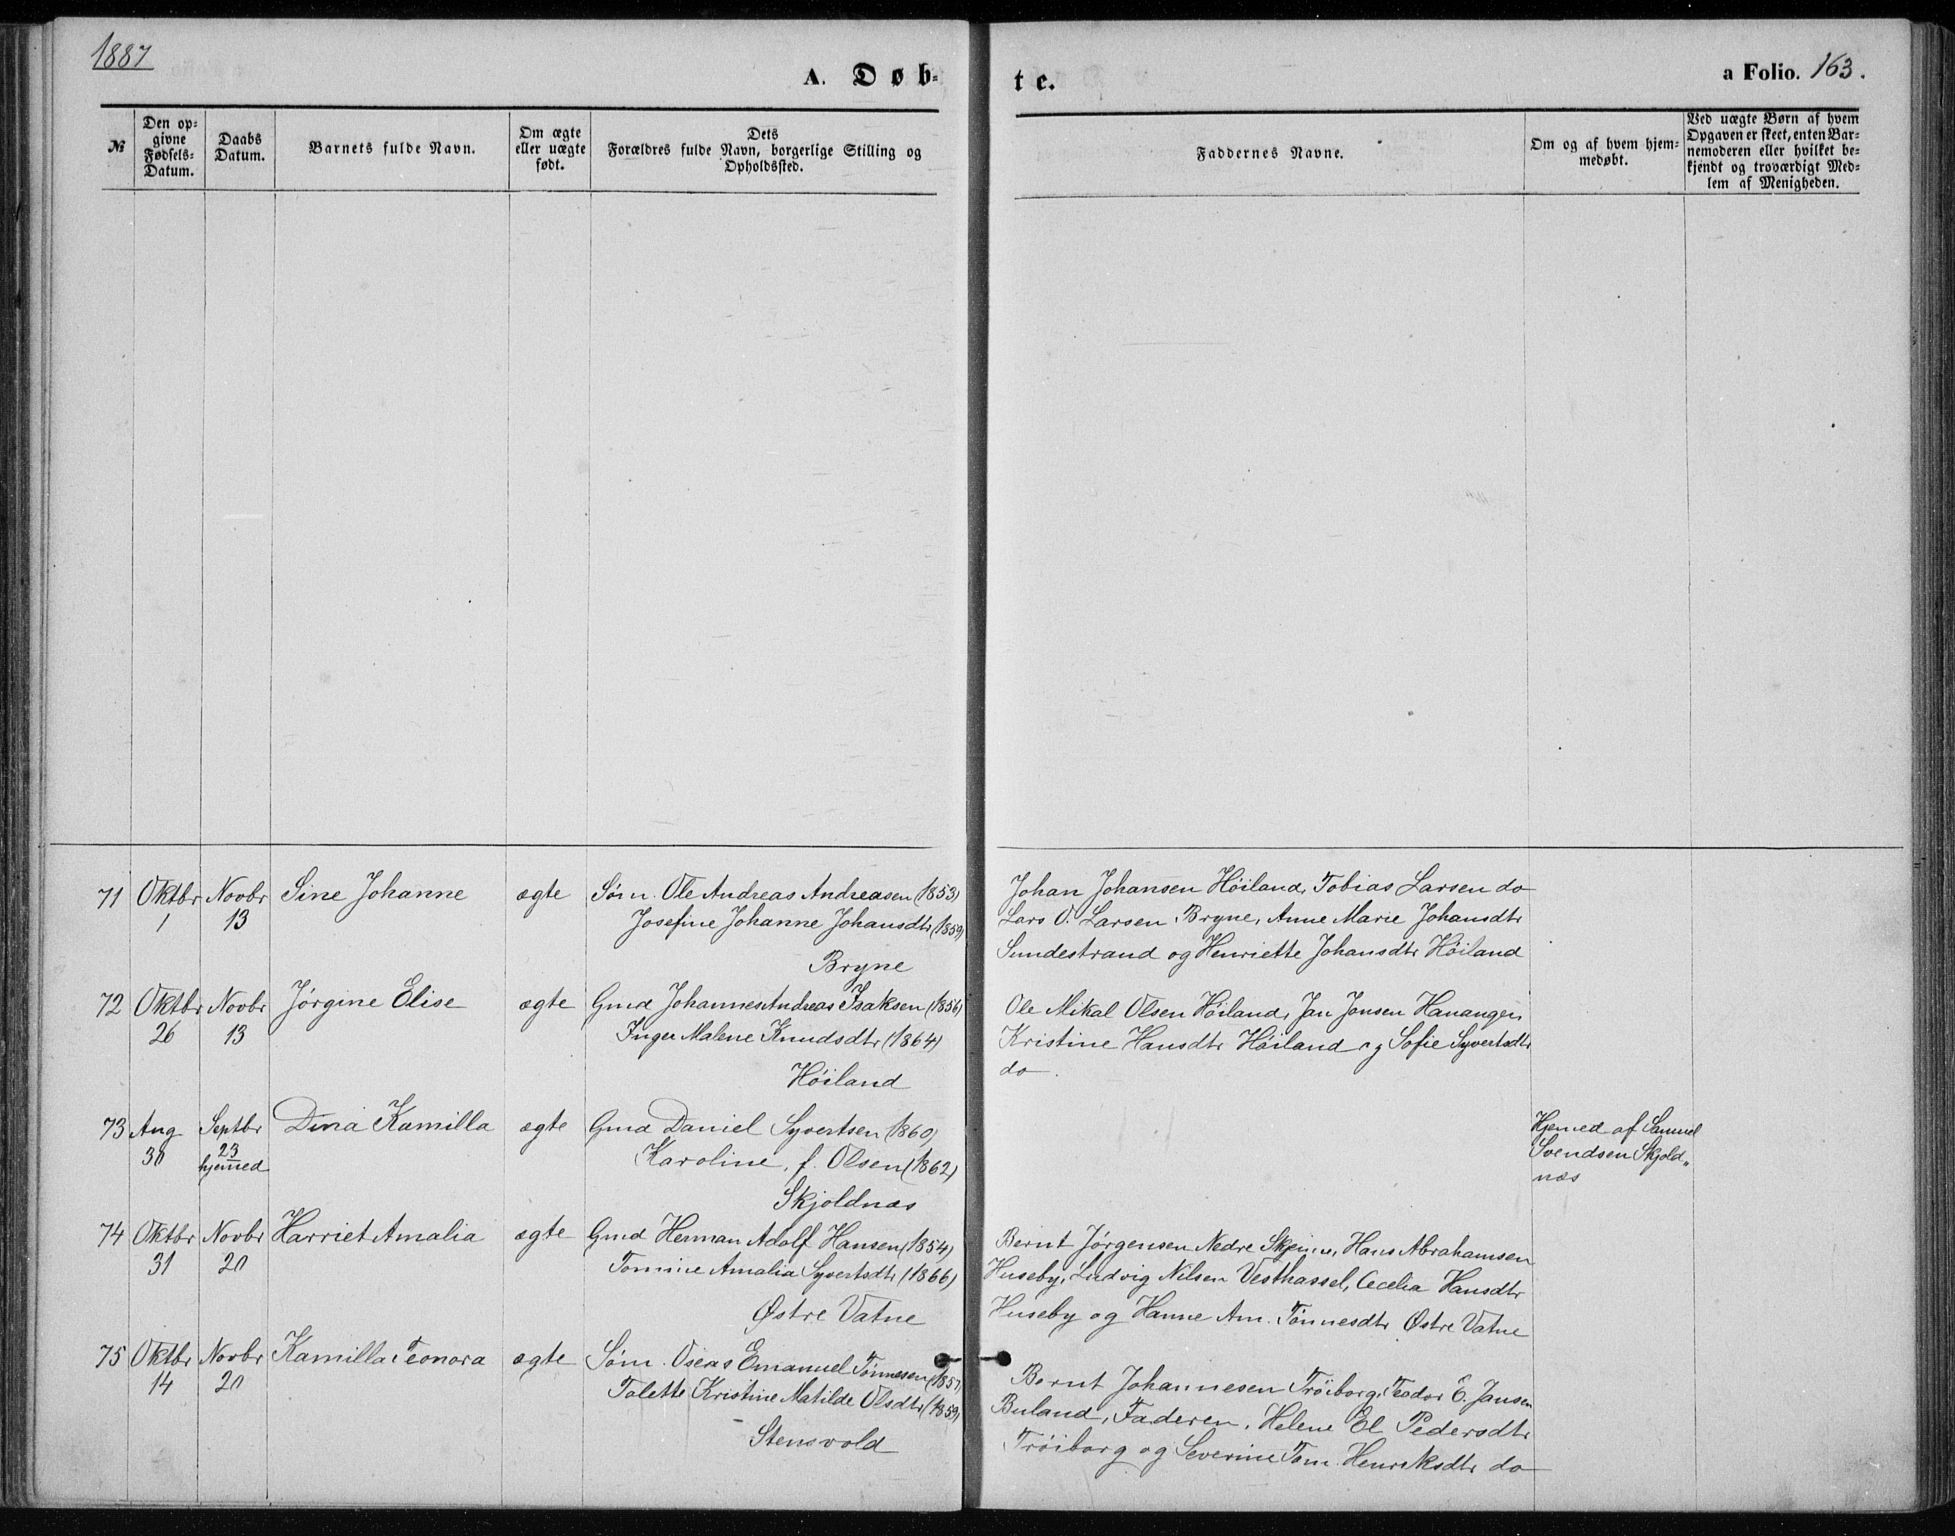 1887
A. Døb-
te.
a Folio. 163.
№
Den op-
givne
Fødsels-
Datum.
Daabs
Datum.
Barnets fulde Navn.
Om ægte
eller uægte
født.
Dets
Forældres fulde Navn, borgerlige Stilling og
Opholdssted.
Faddernes Navne.
Om og af hvem hjem-
medøbt.
Ved uægte Børn af hvem
Opgaven er skeet, enten Bar-
nemoderen eller hvilket be-
kjendt og troværdigt Med-
lem af Menigheden.
71 Oktbr Novbr Sine Johanne ægte Søm. Ole Andreas Andreasen (1853)
1 13 Josefine Johanne Johansdtr (1859)
Bryne
Johan Johansen Höiland, Tobias Larsen do
Lars O. Larsen Bryne, Anne Marie Johansdtr
Sundestrand og Henriette Johansdtr Höiland
72 Oktbr Novbr Jörgine Elise ægte Gmd Johannes Andreas Isaksen (1856)
26 13 Inger Malene Knudsdtr (1864)
Höiland
Ole Mikal Olsen Höiland, Jan Jansen Hananger,
Kristine Hansdtr Höiland og Sofie Syvertsdtr
do.
73 Aug Septbr Dina Kamilla ægte Gmd Daniel Syvertsen (1860)
30 23 Karoline, f. Olsen (1862)
hjemmed
Skjoldnæs
Hjemmed af Samuel
Svendsen Skjold„
næs
74 Oktbr Novbr Harriet Amalia ægte Gmd Herman Adolf Hansen (1854)
31 20 Tomine Amalia Syvertsdtr (1866)
Østre Vatne
Bernt Jörgensen Nedre Skeime, Hans Abrahamsen
Huseby, Ludvig Nilsen Vesthassel, Cecelia Hansdtr
Huseby og Hanne Am. Tönnesdtr Østre Vatne
75 Oktbr Novbr Kamilla Teonora ægte Søm. Oseas Emanuel Tönnesen (1857)
14 20 Tolette Kristine Matilde Olsdtr (1859)
Stensvold
Bernt Johannesen Tröiborg, Teodor E. Jansen
Buland, Faderen, Helene El Pedersdtr
Tröiborg og Severine Tom. Henriksdtr do